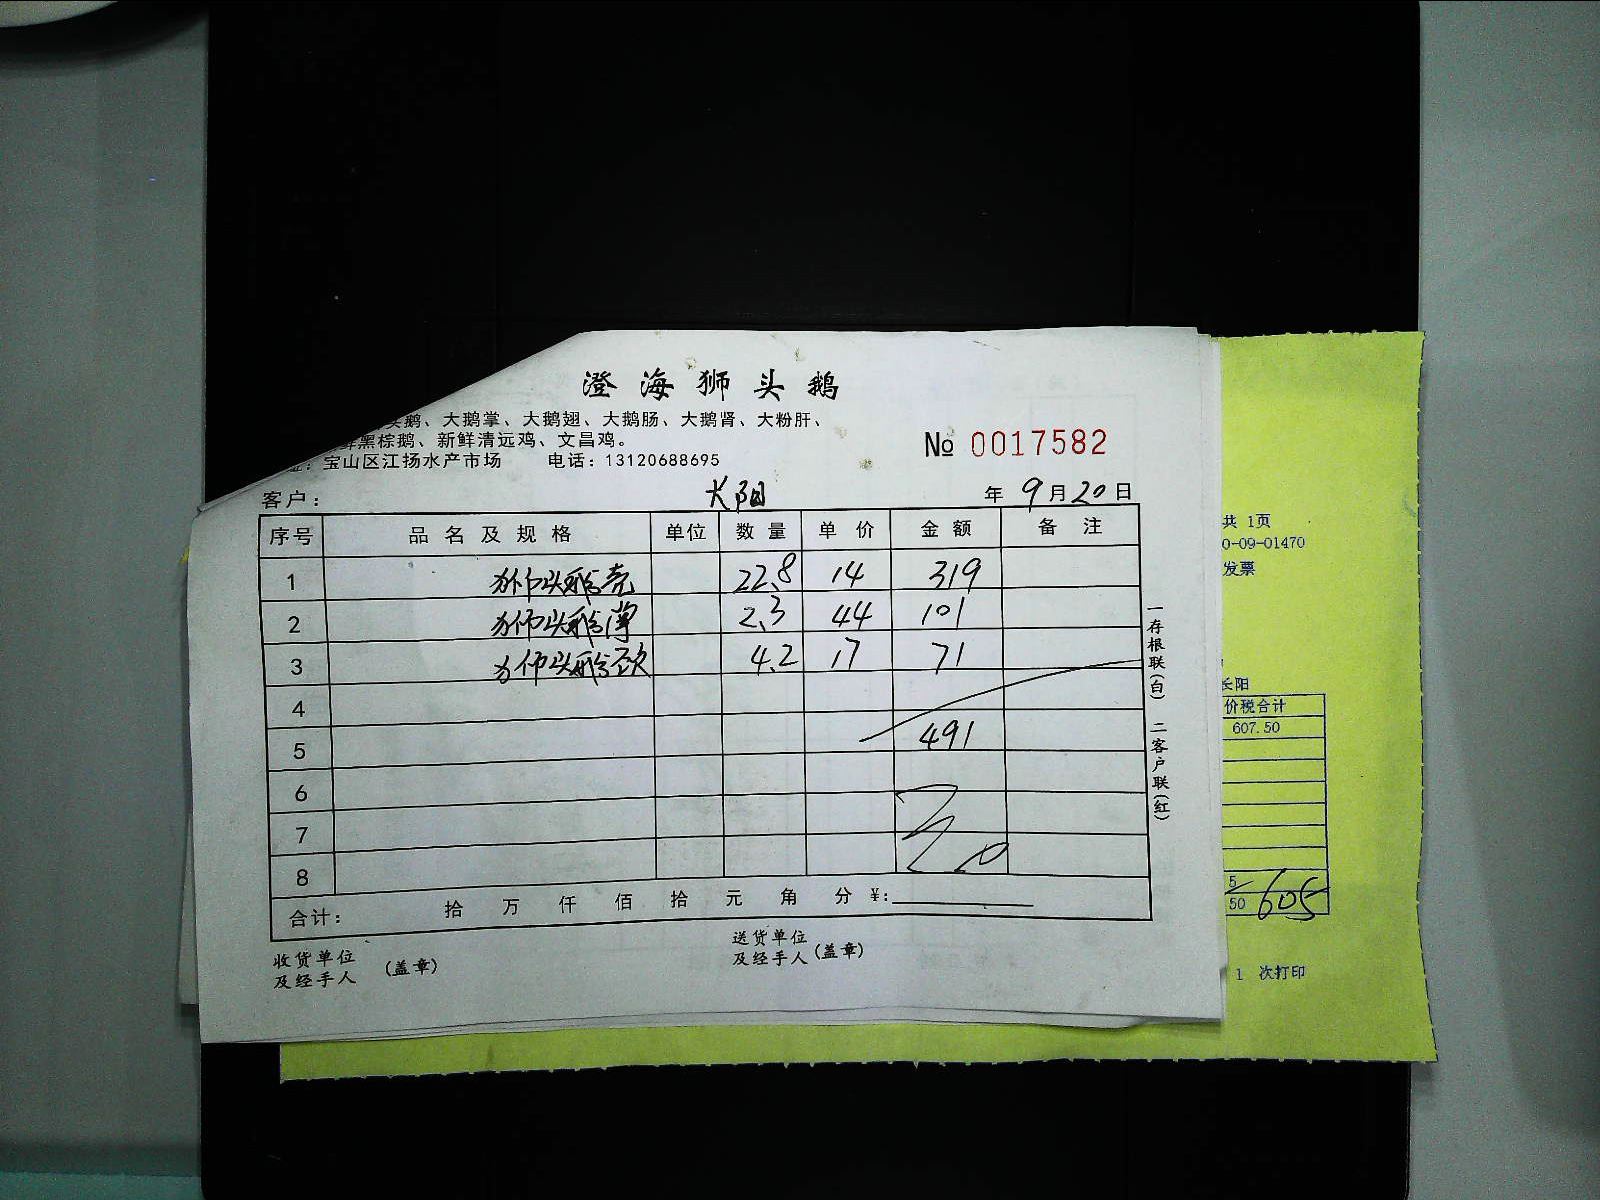 澄海狮头鹅
头鹅、大鹅掌、大鹅翅、大鹅肠、大鹅肾、大粉肝、
鲜黑棕鹅、新鲜清远鸡、文昌鸡。
址：宝山区江扬水产市场 电话：13120688695
№ 0017582
客户： 长阳 年 9 月 20 日
序号 品名及规格 单位 数量 单价 金额 备注
1 狮头鹅壳 22.8 14 319
2 狮头鹅 2.3 44 101
3 狮头鹅 4.2 17 71
4
5 491
6
7
8
合计： 拾 万 仟 佰 拾 元 角 分 ¥:
收货单位 及经手人 (盖章)
送货单位 及经手人 (盖章)
一存根联(白) 二客户联(红)
共 1页
0-09-01470
发票
长阳
价税合计
607.50
5
50 605
1 次打印